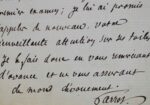 premier examen ; je lui ai promis
appeler de nouveau votre
bienveillante attention sur ses toiles
Je le fais donc en vous remerciant
d'avance et en vous assurant
de mon dévouement.